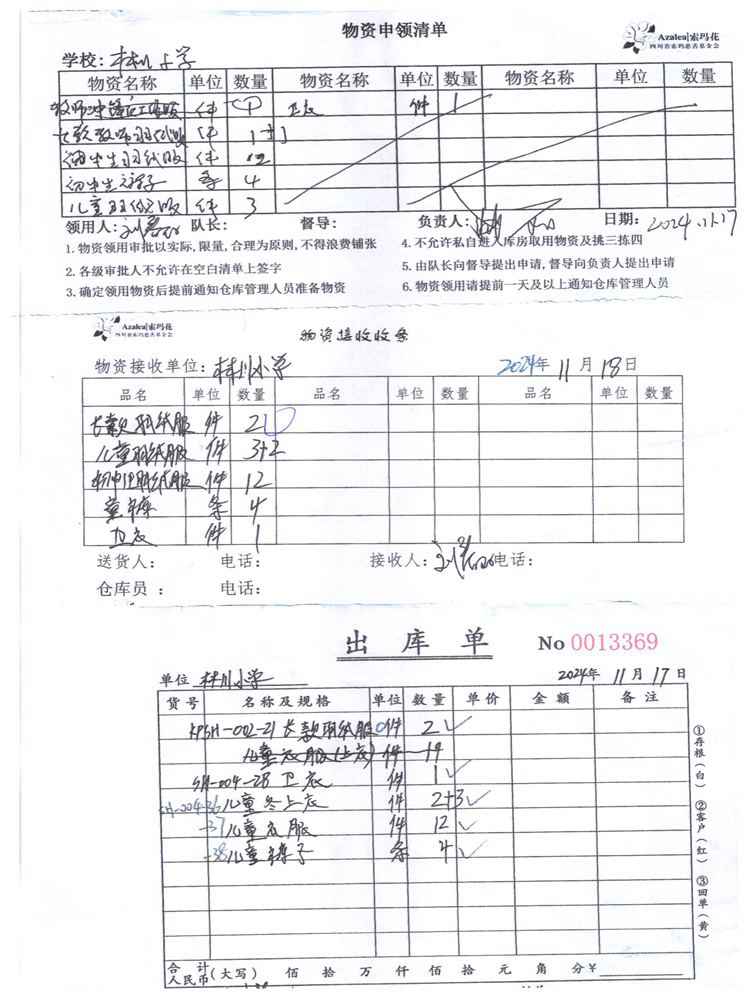 物资申领清单
Azalea|索玛花
四川省索玛慈善基金会
学校: 林川小学
物资名称 单位 数量 物资名称 单位 数量 物资名称 单位 数量
件 1 卫衣 件 1
长款教师羽绒服 件 1+1
初中生羽绒服 件 12
初中生裤子 条 4
儿童羽绒服 件 3
领用人: 队长: 督导: 负责人: 日期: 2024.11.17
1. 物资领用审批以实际, 限量, 合理为原则, 不得浪费铺张 4. 不允许私自进入库房取用物资及挑三拣四
2. 各级审批人不允许在空白清单上签字 5. 由队长向督导提出申请, 督导向负责人提出申请
3. 确定领用物资后提前通知仓库管理人员准备物资 6. 物资领用请提前一天及以上通知仓库管理人员
Azalea|索玛花
四川省索玛慈善基金会
物资接收收条
物资接收单位: 林川小学 2024年 11 月 18 日
品名 单位 数量 品名 单位 数量 品名 单位 数量
长款羽绒服 件 2
儿童羽绒服 件 3+2
初中生羽绒服 件 12
童裤 条 4
卫衣 件 1
送货人: 电话: 接收人: 电话:
仓库员 : 电话:
出库单 No 0013369
单位 林川小学 2024年 11 月 17 日
货号 名称及规格 单位 数量 单价 金额 备注
KPSH-002-21 长款羽绒服 件 2
儿童衣服(上衣) 件 19
SH-004-28 卫衣 件 1
SH-004-36 儿童冬上衣 件 2+3
-37 儿童衣服 件 12
-38 儿童裤子 条 4
①存根(白) ②客户(红) ③回单(黄)
合计人民币 (大写) 佰 拾 万 仟 佰 拾 元 角 分 ¥